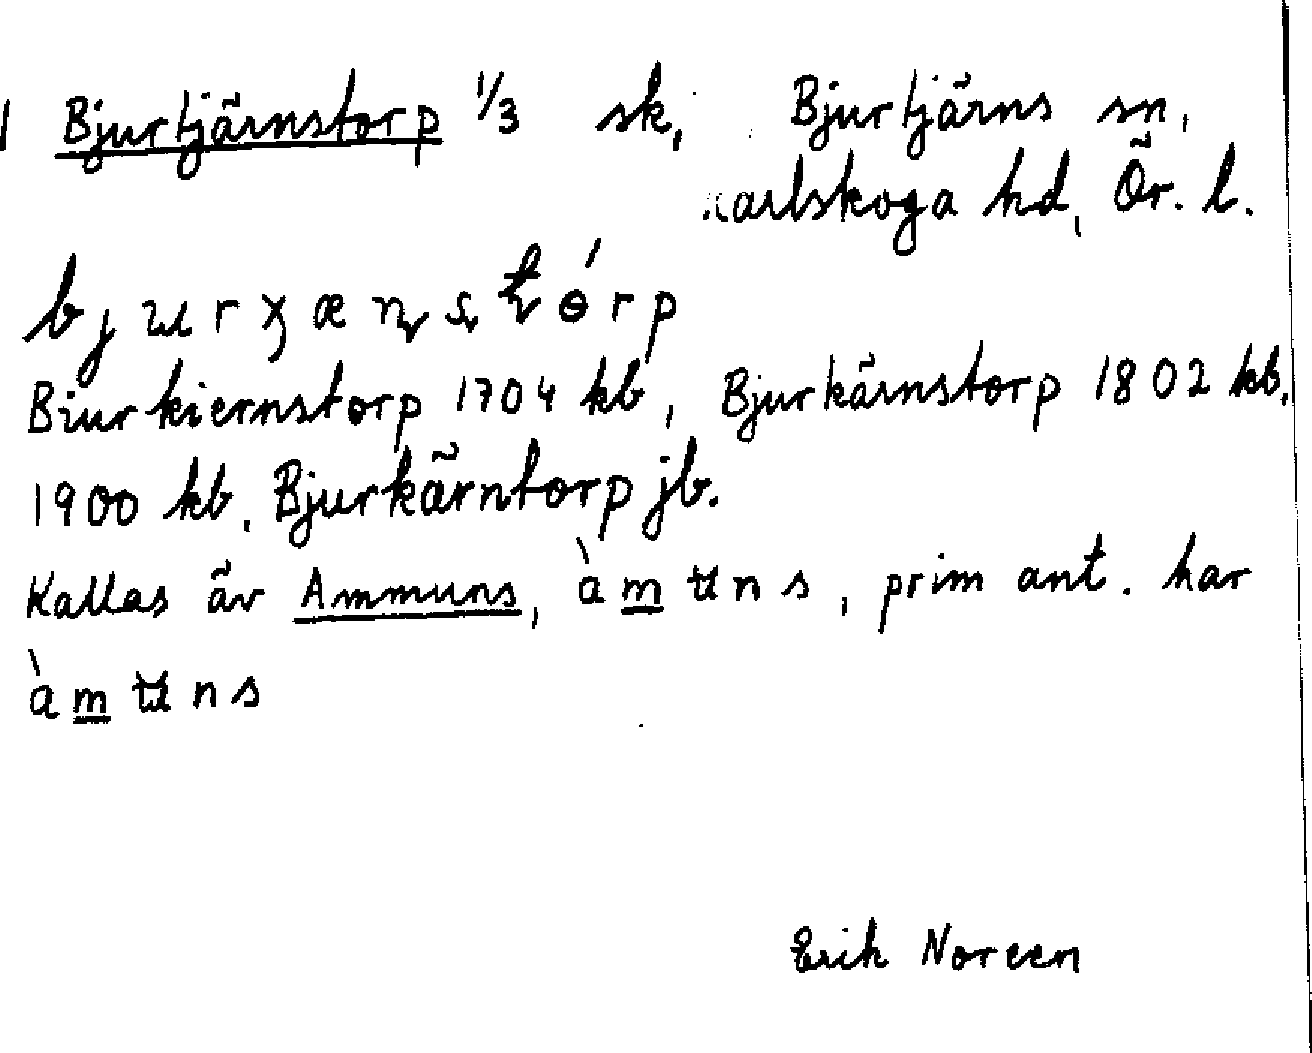 Bjurtjärnstorp 1/3 sk, Bjurtjärns sn,
Karlskoga hd, Ör. l.
Biurkiernstorp 1704 kb, Bjurkärnstorp 1802 kb,
1900 kb, Bjurkärntorp jb.
Kallas äv Ammuns, àmʉns, prim ant. har
àmʉns
Erik Noreen